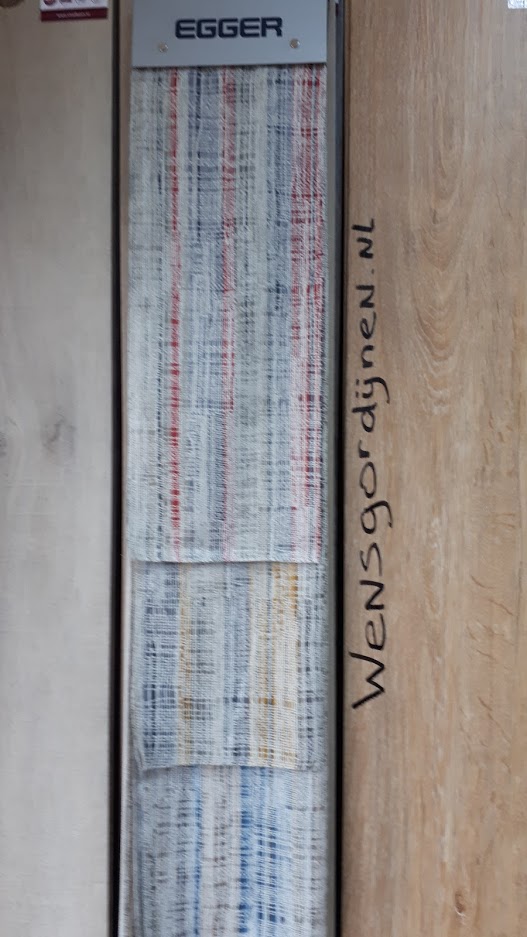 EGGER
WENSgordijnEN.NL